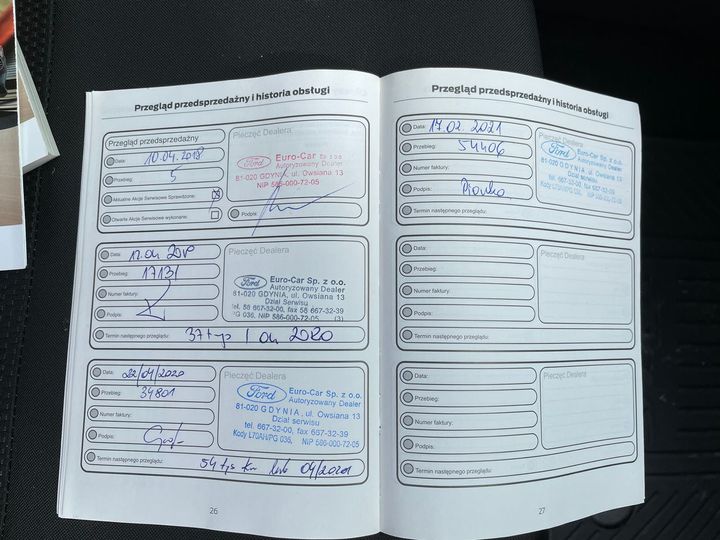 Przegląd przedsprzedażny i historia obsługi
Przegląd przedsprzedażny
Pieczęć Dealera
Data: 10.04.2018
Przebieg: 5
Aktualne Akcje Serwisowe Sprawdzone:
Otwarte Akcje Serwisowe wykonane:
Ford
Euro-Car Sp. z o.o.
Autoryzowany Dealer
81-020 GDYNIA, ul. Owsiana 13
NIP 586-000-72-05
Podpis:
Data:
Przebieg:
Numer faktury:
Podpis:
Pieczęć Dealera
Ford
Euro-Car Sp. z o.o.
Autoryzowany Dealer
81-020 GDYNIA, ul. Owsiana 13
Dział Serwisu
tel. 58 667-32-00, fax 58 667-32-39
PG 036, NIP 586-000-72-05 (3)
Termin następnego przeglądu: 37 tys / 04 2020
Data: 22/04/2020
Przebieg: 34801
Numer faktury:
Podpis:
Pieczęć Dealera
Ford
Euro-Car Sp. z o.o.
Autoryzowany Dealer
81-020 GDYNIA, ul. Owsiana 13
Dział serwisu
tel. 667-32-00, fax 667-32-39
Kody L70AH/PG 036, NIP 586-000-72-05
Termin następnego przeglądu: 54 tys km lub 04/2021
26
Przegląd przedsprzedażny i historia obsługi
Data: 17.02.2021
Przebieg: 54406
Numer faktury:
Podpis:
Termin następnego przeglądu:
Pieczęć Dealera
Ford
Euro-Car Sp. z o.o.
Autoryzowany Dealer
81-020 GDYNIA, ul. Owsiana 13
Dział serwisu
tel. 667-32-00, fax 667-32-39
Data:
Przebieg:
Numer faktury:
Podpis:
Termin następnego przeglądu:
Pieczęć Dealera
Data:
Przebieg:
Numer faktury:
Podpis:
Termin następnego przeglądu:
Pieczęć Dealera
27